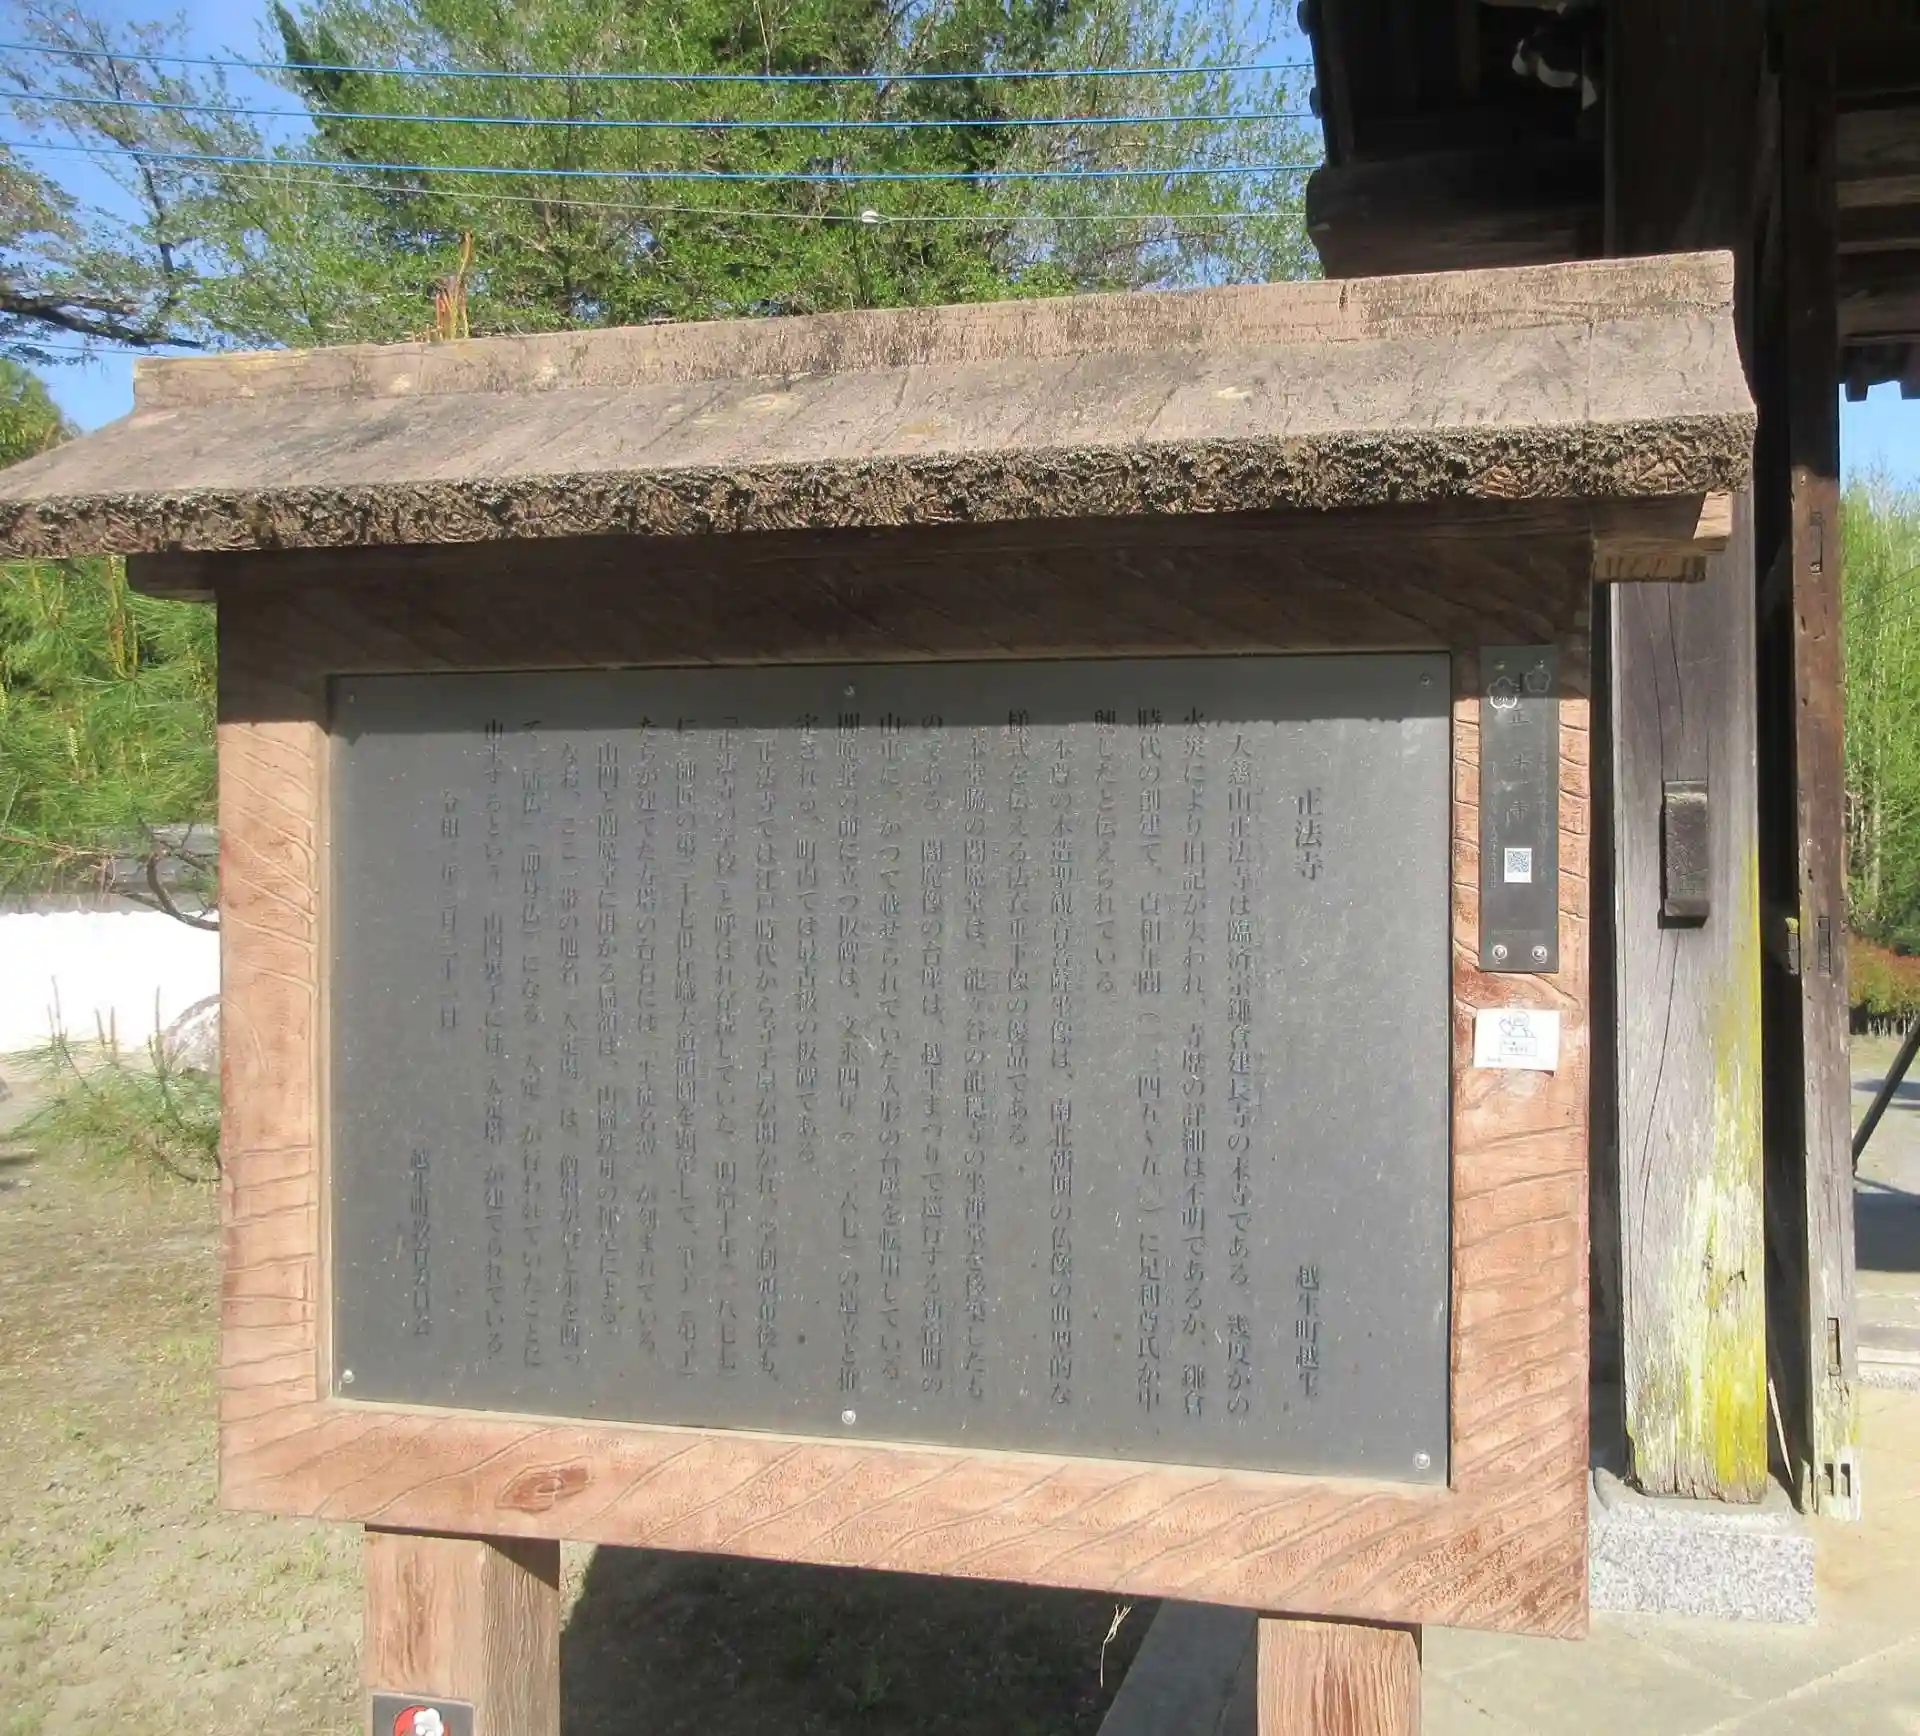 正法寺　越生町越生
大慈山正法寺は臨済宗鎌倉建長寺の末寺である。幾度かの
火災により旧記が失われ、寺歴の詳細は不明であるが、鎌倉
時代の創建で、貞和年間（一三四五〜五〇）に足利尊氏が中
興したと伝えられている。
本尊の木造聖観音菩薩坐像は、南北朝期の仏像の典型的な
様式を伝える法衣垂下像の優品である。
本堂脇の閻魔堂は、龍ヶ谷の龍隠寺の坐禅堂を移築したも
のである。閻魔像の台座は、越生まつりで巡行する新宿町の
山車に、かつて載せられていた人形の台座を転用している。
閻魔堂の前に立つ板碑は、文永四年（一二六七）の造立と推
定される。町内では最古級の板碑である。
正法寺では江戸時代から寺子屋が開かれ、学制発布後も、
「正法寺の学校」と呼ばれ存続していた。明治十年（一八七七）
に、師匠の第二十七世住職大道碩圓を顕彰して、筆子（弟子）
たちが建てた寿塔の台石には「生徒名簿」が刻まれている。
山門と閻魔堂に掛かる扁額は、山岡鉄舟の揮毫による。
なお、ここ一帯の地名「入定場」は、僧侶が食と水を断っ
て「活仏」（即身仏）になる「入定」が行われていたことに
由来するという。山門裏手には「入定塔」が建てられている。
令和二年三月三十一日
越生町教育委員会